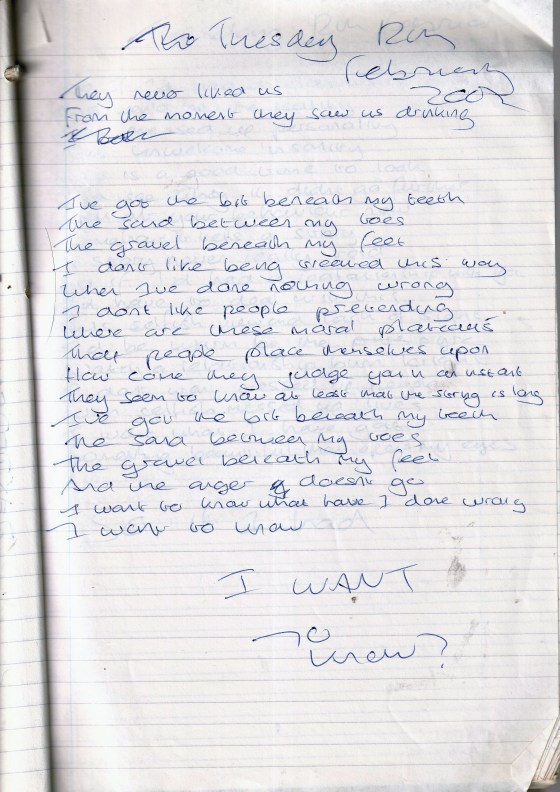 The Tuesday Run
February
2002
They never liked us
From the moment they saw us drinking
I've got the bit beneath my teeth
The sand between my toes
The gravel beneath my feet
I don't like being treated this way
When I've done nothing wrong
I don't like people pretending
Where are these moral plateau's
That people place themselves upon
How come they judge you in an instant
They seem to know at least that the string is long
I've got the bit beneath my teeth
The sand between my toes
The gravel beneath my feet
And the anger doesn't go
I want to know what have I done wrong
I want to know
I WANT
TO
know?